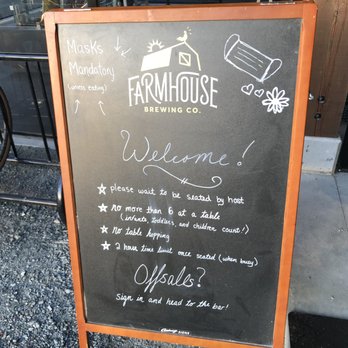 Masks
Mandatory
(unless eating)
FARMHOUSE
BREWING CO.
Welcome!
please wait to be seated by host
no more than 6 at a table
(infants, toddlers, and children count!)
no table hopping
2 hour time limit once seated (when busy)
Offsales?
Sign in and head to the bar!